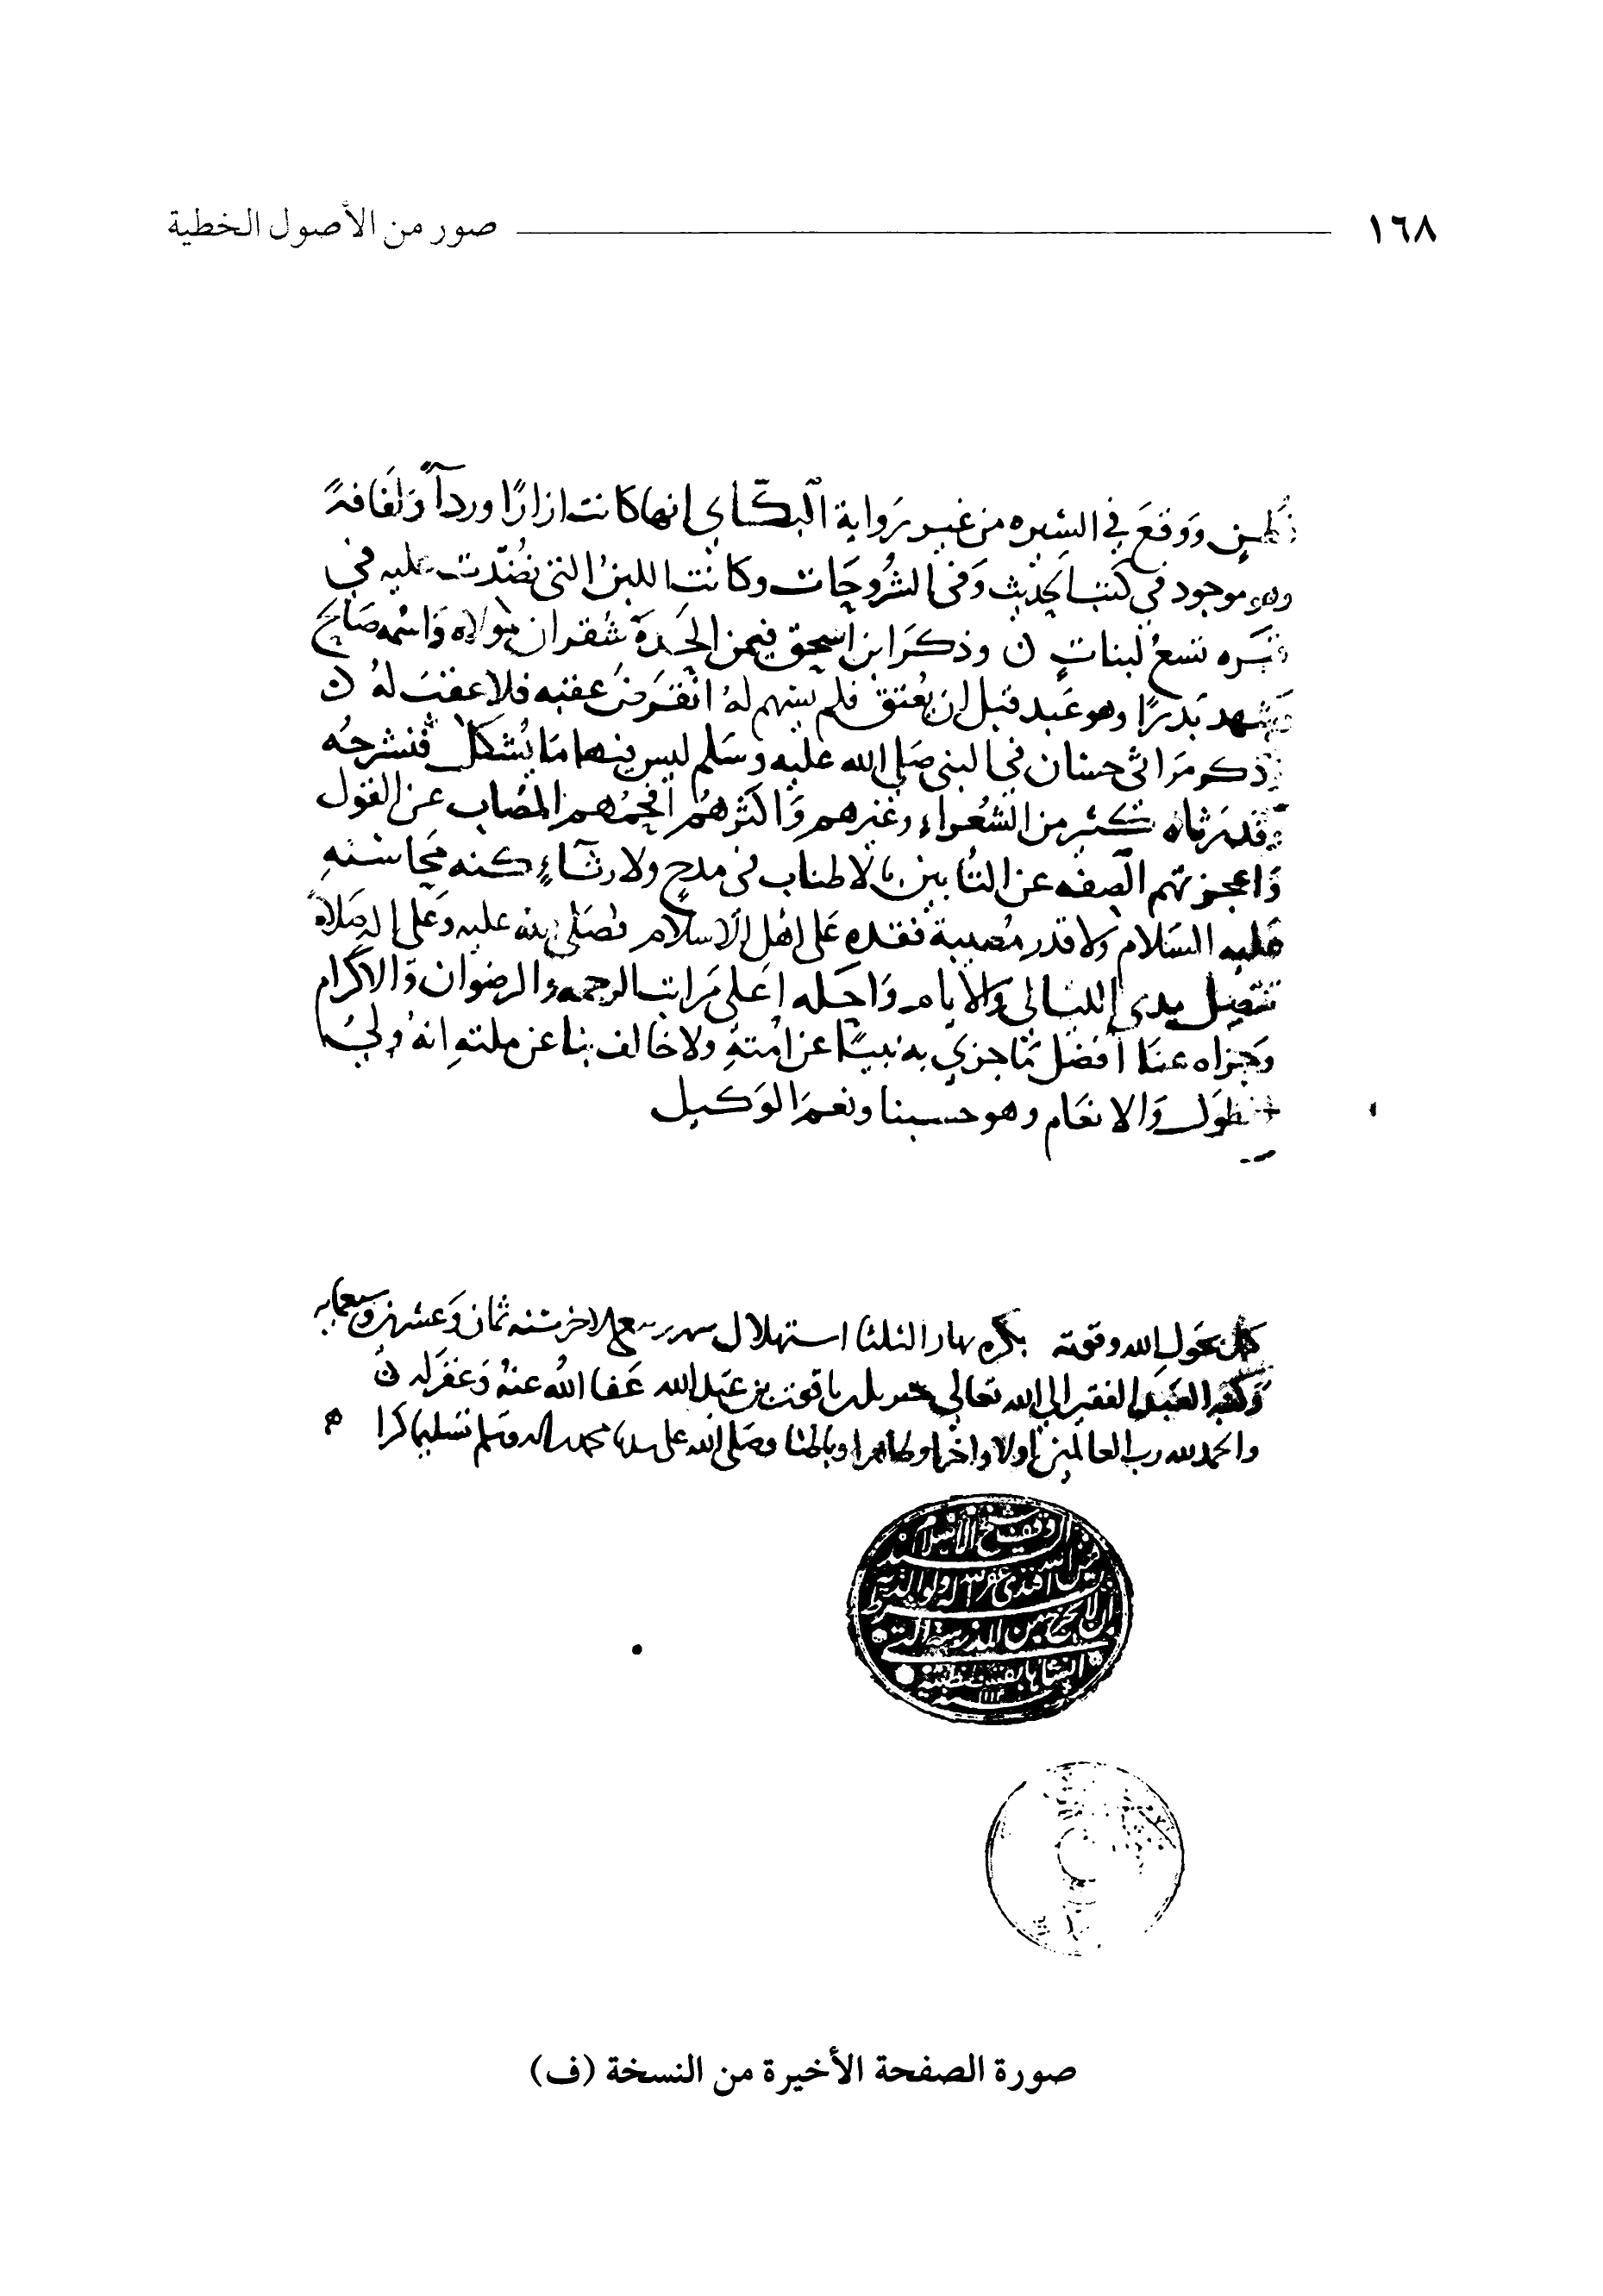 ١٦٨ صور من الأصول الخطية
قطن ووقعَ في السيره من غير رَواية البكّاي انها كانت ازارًا ورداً وَلفافةً
وهو موجود في كتب الحديث وَفى الشرُوحَات وكانت اللبن التى نضّدت عليه في
قبره تسعُ لبناتٍ ن وذكَرَ ابن اسحق فيمن الحَدهَ شقران مولاه وَاسمه صَالح
وشهد بَدرًا وهو عَبد قبل ان يُعتق فلم يسهم لهُ انقرَضَ عقبه فلا عقبَ لهُ ن
وذكر مرَاثى حسّان في النبى صَلى الله عليه وسَلم ليس فيها مَا يُشكل فنشرحُه
وقد رَثاه كثير من الشعَراء وغيرهم وَاكثرهُم افحمُهم المصَاب عن القول
وَاعجزتهم الصفه عن التأبين بالاطناب في مدحٍ ولا رثآءٍ كنه محَاسنه
عَليه السَلام وَلا قدر مُصيبة فقده عَلى اهل الاسلام فصَلى الله عليه وعَلى اله صَلاة
تتصل مدى الليالى وَالايام وَاحله اعَلى مَراتب الرحمه والرضوان وَالاكرام
وَجزاه عنا افضل مَا جزي به نبيًا عن امّته ولا خالف بنا عن ملته انهُ وليُ
الطَول وَالانعَام وهو حسبنا ونعمَ الوَكيل
كمل بحَول الله وقوته بكره نهار الثلثا استهلال شهر ربيع الاخر سنه ثمان وَعشرين وسبعمايه
وَكتبه العَبد الفقير الي الله تعالي ياقوت بن عَبد الله عَفا الله عنهُ وَغفرَ له ن
والحمد لله رب العالمين اولا واخرا وظاهرا وباطنا وصَلى الله على سيدنا محمد واله وسَلم تسليما كثرا
وقف شيخ الاسلام
فيض الله افندى غفر الله له ولوالديه بشرط
ان لا يخرج من المدرسة التى
انشأها بقسطنطينية
سنة ١١١٣
صورة الصفحة الأخيرة من النسخة (ف)